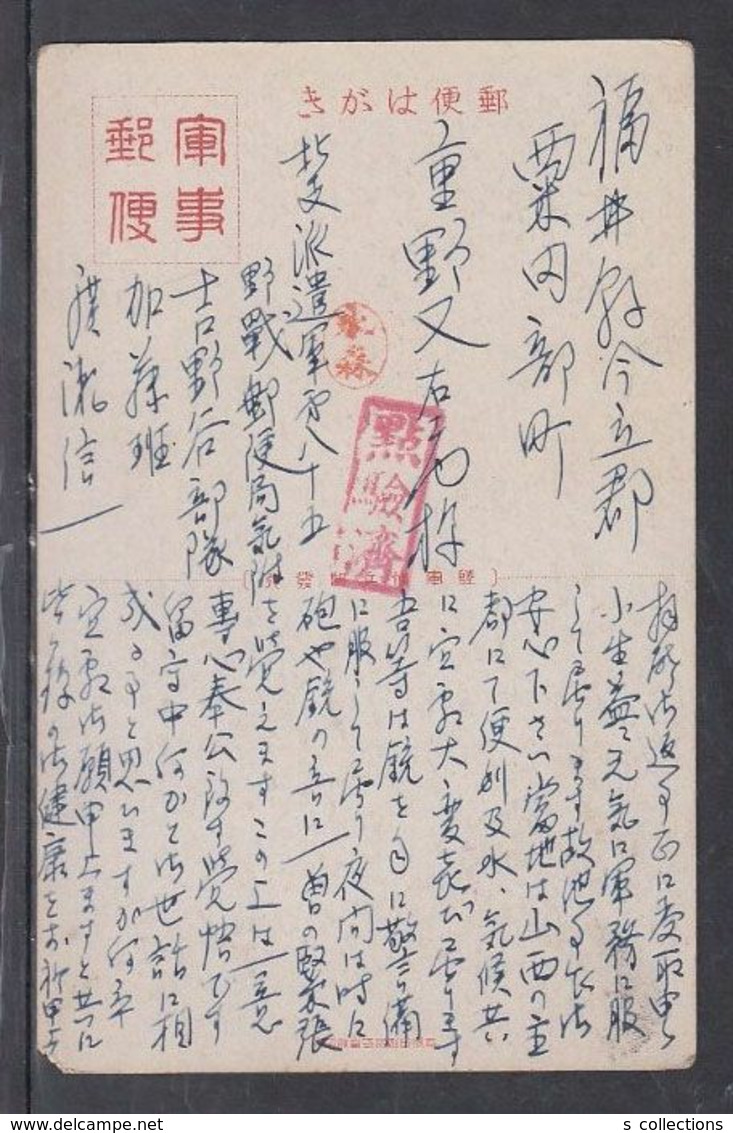 郵便はがき
軍事
郵便
福井県今立郡
粟田部町
重野又左ェ門様
北支派遣軍第八十五
野戦郵便局気附
吉野谷部隊
加藤班
信一
永森
點驗濟
拝啓御返事正に受取申し
小生益々元気に軍務に服
して居ります故他事乍ら御
安心下さい当地は山西の主
都にて便利及水、気候共
に宜敷大変喜び居ります
吾等は銃を手に警備
に服して居り夜間は時に
砲や銃の音に一層の緊張
を覚えますこの上は一意
専心奉公致す覚悟です
留守中何かと御世話に相
成る事と思いますが何卒
宜敷御願申上ますと共に
皆々様の御健康をお祈申上